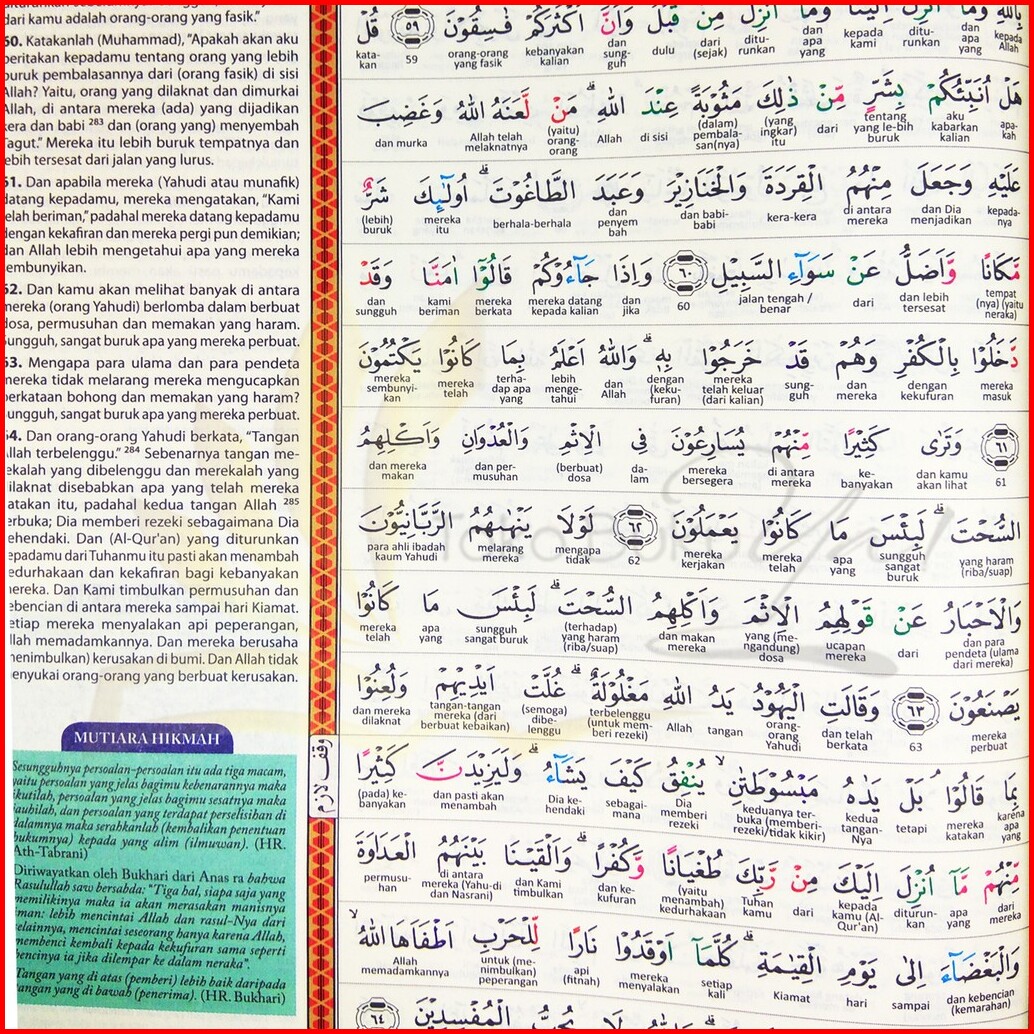 dari kamu adalah orang-orang yang fasik."
60. Katakanlah (Muhammad), "Apakah akan aku
beritakan kepadamu tentang orang yang lebih
buruk pembalasannya dari (orang fasik) di sisi
Allah? Yaitu, orang yang dilaknat dan dimurkai
Allah, di antara mereka (ada) yang dijadikan
kera dan babi 283 dan (orang yang) menyembah
Tagut." Mereka itu lebih buruk tempatnya dan
lebih tersesat dari jalan yang lurus.
61. Dan apabila mereka (Yahudi atau munafik)
datang kepadamu, mereka mengatakan, "Kami
telah beriman," padahal mereka datang kepadamu
dengan kekafiran dan mereka pergi pun demikian;
dan Allah lebih mengetahui apa yang mereka
sembunyikan.
62. Dan kamu akan melihat banyak di antara
mereka (orang Yahudi) berlomba dalam berbuat
dosa, permusuhan dan memakan yang haram.
Sungguh, sangat buruk apa yang mereka perbuat.
63. Mengapa para ulama dan para pendeta
mereka tidak melarang mereka mengucapkan
perkataan bohong dan memakan yang haram?
Sungguh, sangat buruk apa yang mereka perbuat.
64. Dan orang-orang Yahudi berkata, "Tangan
Allah terbelenggu." 284 Sebenarnya tangan me-
rekalah yang dibelenggu dan merekalah yang
dilaknat disebabkan apa yang telah mereka
katakan itu, padahal kedua tangan Allah 285
terbuka; Dia memberi rezeki sebagaimana Dia
kehendaki. Dan (Al-Qur'an) yang diturunkan
kepadamu dari Tuhanmu itu pasti akan menambah
kedurhakaan dan kekafiran bagi kebanyakan
mereka. Dan Kami timbulkan permusuhan dan
kebencian di antara mereka sampai hari Kiamat.
Setiap mereka menyalakan api peperangan,
Allah memadamkannya. Dan mereka berusaha
(menimbulkan) kerusakan di bumi. Dan Allah tidak
menyukai orang-orang yang berbuat kerusakan.
MUTIARA HIKMAH
Sesungguhnya persoalan-persoalan itu ada tiga macam,
yaitu persoalan yang jelas bagimu kebenarannya maka
ikutilah, persoalan yang jelas bagimu sesatnya maka
jauhilah, dan persoalan yang terdapat perselisihan di
dalamnya maka serahkanlah (kembalikan penentuan
hukumnya) kepada yang alim (ilmuwan). (HR.
Ath-Tabrani)
Diriwayatkan oleh Bukhari dari Anas ra bahwa
Rasulullah saw bersabda: "Tiga hal, siapa saja yang
memilikinya maka ia akan merasakan manisnya
iman: lebih mencintai Allah dan rasul-Nya dari
selainnya, mencintai seseorang hanya karena Allah,
membenci kembali kepada kekufuran sama seperti
bencinya ia jika dilempar ke dalam neraka".
Tangan yang di atas (pemberi) lebih baik daripada
tangan yang di bawah (penerima). (HR. Bukhari)
وقف لازم
بِاللّٰهِ وَمَآ اُنْزِلَ اِلَيْنَا وَمَآ اُنْزِلَ مِنْ قَبْلُ وَاَنَّ اَكْثَرَكُمْ فٰسِقُوْنَ ٥٩ قُلْ
kepada Allah dan apa yang ditu-runkan kepada kami dan apa yang ditu-runkan dari (sejak) dulu dan sung-guh kebanyakan kalian orang-orang yang fasik 59 kata-kan
هَلْ اُنَبِّئُكُمْ بِشَرٍّ مِّنْ ذٰلِكَ مَثُوْبَةً عِنْدَ اللّٰهِ ۗ مَنْ لَّعَنَهُ اللّٰهُ وَغَضِبَ
apa-kah aku kabarkan kalian tentang yang le-bih buruk dari (yang ingkar) itu (dalam) pembala-san(nya) di sisi Allah (yaitu) orang-orang Allah telah melaknatnya dan murka
عَلَيْهِ وَجَعَلَ مِنْهُمُ الْقِرَدَةَ وَالْخَنَازِيْرَ وَعَبَدَ الطَّاغُوْتَ ۗ اُولٰۤىِٕكَ شَرٌّ
kepada-nya dan Dia menjadikan di antara mereka kera-kera dan babi-babi dan penyem bah berhala-berhala mereka itu (lebih) buruk
مَّكَانًا وَّاَضَلُّ عَنْ سَوَاۤءِ السَّبِيْلِ ٦٠ وَاِذَا جَاۤءُوْكُمْ قَالُوْٓا اٰمَنَّا وَقَدْ
tempat (nya) (yaitu neraka) dan lebih tersesat dari jalan tengah / benar 60 dan jika mereka datang kepada kalian mereka berkata kami beriman dan sungguh
دَّخَلُوْا بِالْكُفْرِ وَهُمْ قَدْ خَرَجُوْا بِهٖ ۗ وَاللّٰهُ اَعْلَمُ بِمَا كَانُوْا يَكْتُمُوْنَ
mereka masuk dengan kekufuran dan mereka sung-guh mereka telah keluar (dari kalian) dengan (keku-furan) dan Allah lebih menge-tahui terha-dap apa yang mereka telah mereka sembunyi-kan
٦١ وَتَرٰى كَثِيْرًا مِّنْهُمْ يُسَارِعُوْنَ فِى الْاِثْمِ وَالْعُدْوَانِ وَاَكْلِهِمُ
61 dan kamu akan lihat ke-banyakan di antara mereka mereka bersegera da-lam (berbuat) dosa dan per-musuhan dan mereka makan
السُّحْتَ ۗ لَبِئْسَ مَا كَانُوْا يَعْمَلُوْنَ ٦٢ لَوْلَا يَنْهٰىهُمُ الرَّبَّانِيُّوْنَ
yang haram (riba/suap) sungguh sangat buruk apa yang mereka telah mereka kerjakan 62 mengapa tidak melarang mereka para ahli ibadah kaum Yahudi
وَالْاَحْبَارُ عَنْ قَوْلِهِمُ الْاِثْمَ وَاَكْلِهِمُ السُّحْتَ ۗ لَبِئْسَ مَا كَانُوْا
dan para pendeta (ulama dari mereka) dari ucapan mereka yang (me-ngandung) dosa dan makan mereka (terhadap) yang haram (riba/suap) sungguh sangat buruk apa yang mereka telah
يَصْنَعُوْنَ ٦٣ وَقَالَتِ الْيَهُوْدُ يَدُ اللّٰهِ مَغْلُوْلَةٌ ۗ غُلَّتْ اَيْدِيْهِمْ وَلُعِنُوْا
mereka perbuat 63 dan telah berkata orang-orang Yahudi tangan Allah terbelenggu (untuk mem-beri rezeki) (semoga) dibe-lenggu tangan-tangan mereka (dari berbuat kebaikan) dan mereka dilaknat
بِمَا قَالُوْا ۘ بَلْ يَدٰهُ مَبْسُوْطَتٰنِ ۙ يُنْفِقُ كَيْفَ يَشَاۤءُ ۗ وَلَيَزِيْدَنَّ كَثِيْرًا
karena apa yang mereka katakan tetapi kedua tangan-Nya keduanya ter-buka (memberi-rezeki/tidak kikir) Dia memberi rezeki sebagai-mana Dia ke-hendaki dan pasti akan menambah (pada) ke-banyakan
مِّنْهُمْ مَّآ اُنْزِلَ اِلَيْكَ مِنْ رَّبِّكَ طُغْيَانًا وَّكُفْرًا ۗ وَاَلْقَيْنَا بَيْنَهُمُ الْعَدَاوَةَ
dari mereka apa yang diturun-kan kepada kamu (Al-Qur'an) dari Tuhan kamu (yaitu menambah) kedurhakaan dan ke-kufuran dan Kami timbulkan di antara mereka (Yahu-di dan Nasrani) permusu-han
وَالْبَغْضَاۤءَ اِلٰى يَوْمِ الْقِيٰمَةِ ۗ كُلَّمَآ اَوْقَدُوْا نَارًا لِّلْحَرْبِ اَطْفَاَهَا اللّٰهُ ۙ
dan kebencian (kemarahan) sampai hari Kiamat setiap kali mereka menyalakan api (fitnah) untuk (me-nimbulkan) peperangan Allah memadamkannya
الْمُفْسِدِيْنَ ٦٤